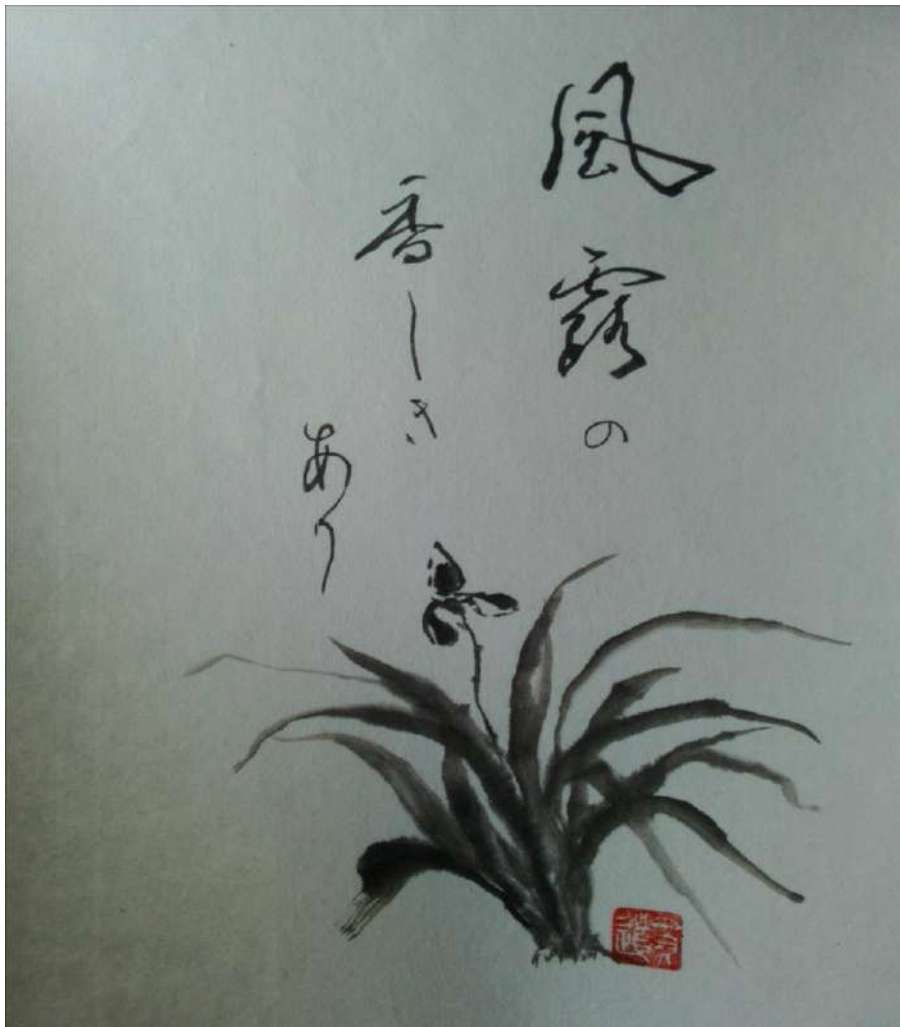 風露の
香しき
あり